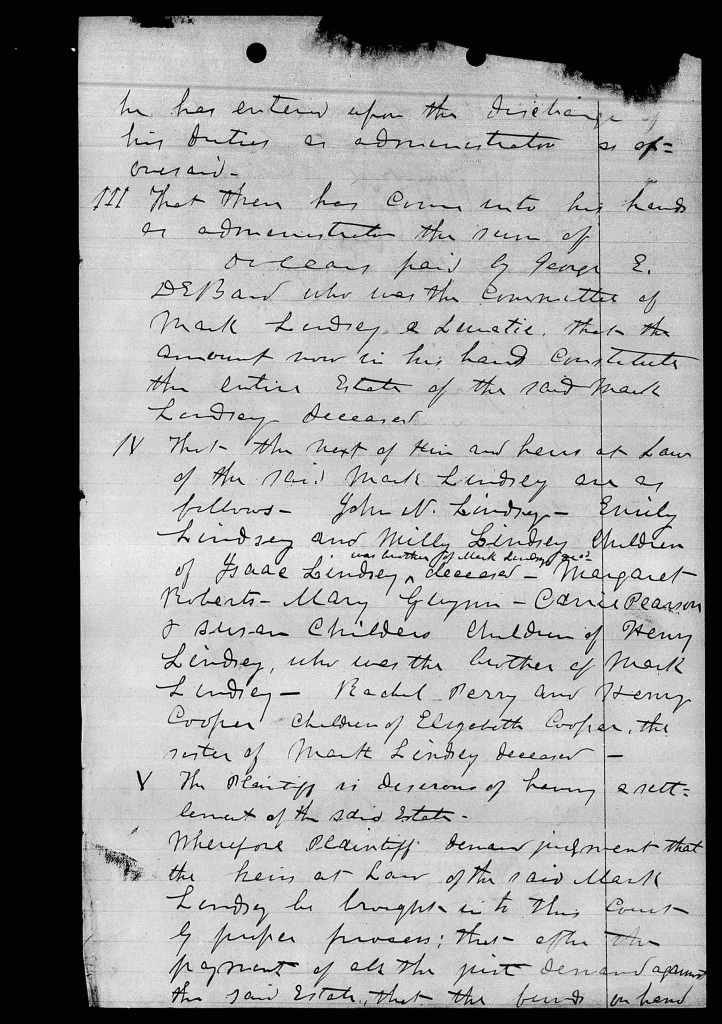 he has entered upon the discharge of
his duties as administrator as af=
oresaid-
III That there has come into his hands
as administrator the sum of
Dollars paid by George E.
DEBard who was the Committee of
Mark Lindsey a Lunatic. that the
amount now in his hand Constitute
the entire Estate of the said Mark
Lindsey deceased
IV That the next of Kin and heirs at Law
of the said Mark Lindsey are as
follows- John N. Lindsey- Emily
Lindsey and Milly Lindsey Children
was brother of Mark Lindsey
of Isaac Lindsey ^ deceased- Margaret
Roberts- Mary Glynn- Carrie Pearson
& Susan Childers Children of Henry
Lindsey, who was the brother of Mark
Lindsey- Rachel Perry and Henry
Cooper Children of Elizabeth Cooper, the
sister of Mark Lindsey deceased-
V The Plaintiff is desirous of having a sett=
lement of the said Estate-
Wherefore Plaintiff demand judgment that
the heirs at Law of the said Mark
Lindsey be brought in to this Court
by proper process; that after the
payment of all the just demand against
the said Estate, that the funds on hand